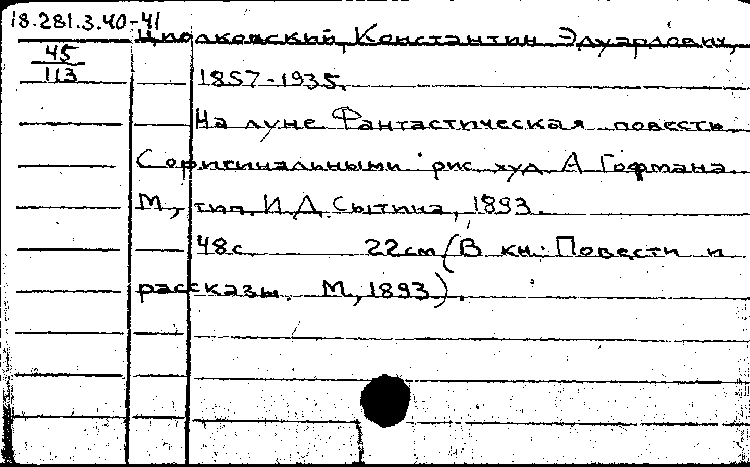 18.281.3.40-41
45
113
Циолковский, Константин Эдуардович,
1857-1935.
На луне Фантастическая повесть
С оригинальными рис. худ. А Гофмана
М., тип. И.Д. Сытина, 1893.
48с. 22см (В кн.: Повести и
рассказы. М., 1893).